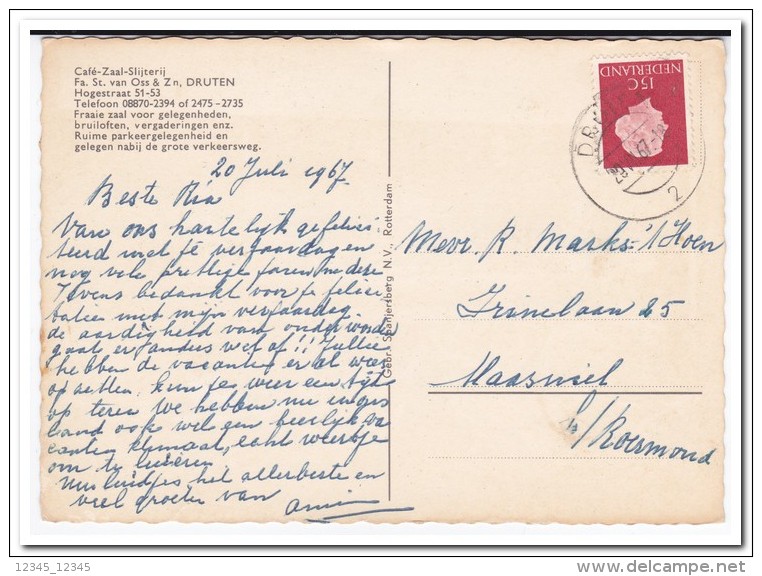 Café-Zaal-Slijterij
Fa. St. van Oss & Zn, DRUTEN
Hogestraat 51-53
Telefoon 08870-2394 of 2475 -2735
Fraaie zaal voor gelegenheden,
bruiloften, vergaderingen enz.
Ruime parkeergelegenheid en
gelegen nabij de grote verkeersweg.
20 Juli 1967
Beste Ria
Van ons hartelijk gefelici:
teerd met je verjaardag en
nog vele prettige jaren na deze
Tevens bedankt voor je felici
taties met mijn verjaardag
de aardigheid van
gaat er anders wel af!! Jullie
hebben de vacantie er al weer
op zitten, kun je weer een tijd
op teren. We hebben nu in ons
land ook wel een heerlijk va
cantie klimaat, echt weertje
om te luieren
Nu luidjes het allerbeste en
veel groeten van
Gebr. Spanjersberg N.V., Rotterdam
NEDERLAND
15C
DRUTEN
67
2
Mevr. R. Marks-'t Hoen
Irinelaan 25
Maasniel
b/ Roermond
12345_12345
delcampe.net